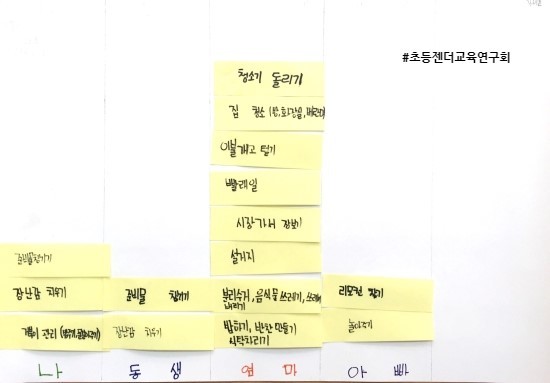 #초등젠더교육연구회
청소기 돌리기
집 청소 (방, 화장실, 베란다)
이불 개고 털기
빨래일
시장가서 장보기
설거지
준비물챙기기
장난감 치우기
준비물 챙기기
분리수거, 음식물 쓰레기, 쓰레기
버리기
리모컨 찾기
장난감 치우기
밥하기, 반찬 만들기
식탁차리기
놀아주기
나 동생 엄마 아빠